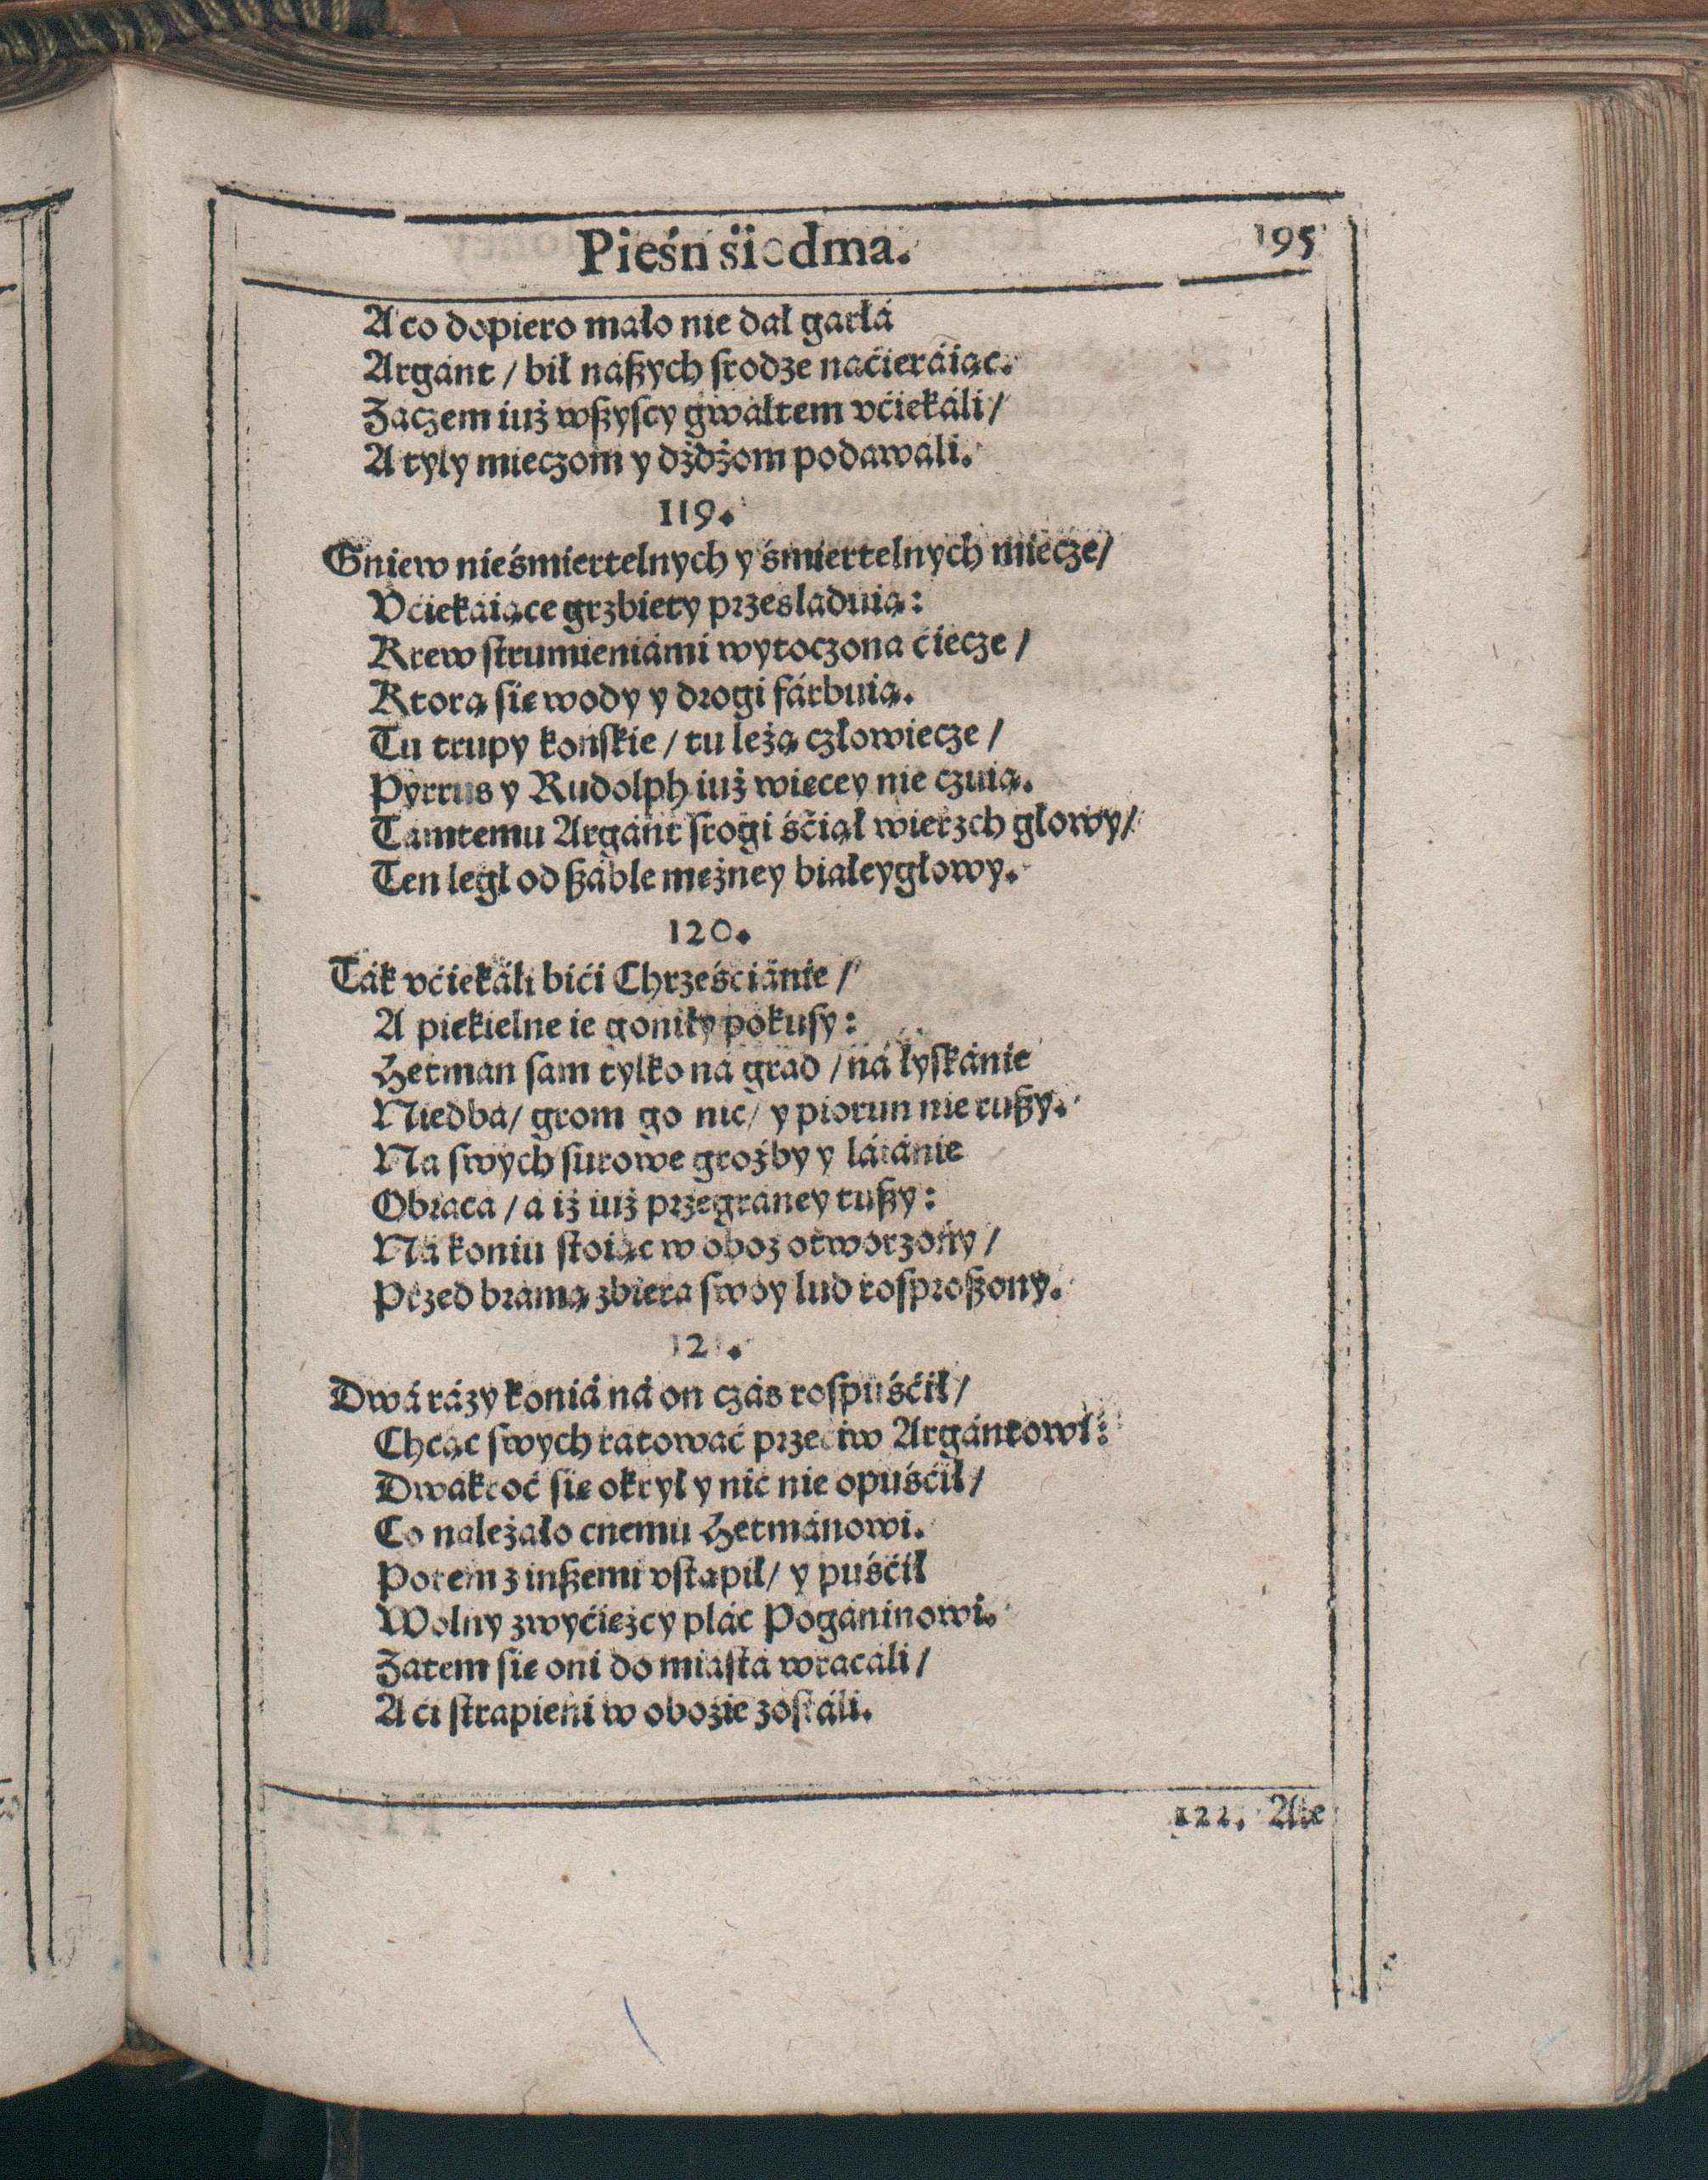 Pieśń śiodma.
195
A co dopiero máło nie dał gárłá
Argánt / bił nászych srodze náćieráiąc.
Záczem iuż wszyscy gwałtem vćiekáli /
A tyły mieczom y dżdżom podawáli.
119.
Gniew nieśmiertelnych y śmiertelnych miecze /
Vćiekáiące grzbiety prześláduią:
Krew strumieniámi wytoczona ćiecze /
Ktorą się wody y drogi fárbuią.
Tu trupy końskie / tu leżą człowiecze /
Pyrrus y Rudolph iuż więcey nie czuią.
Támtemu Argánt srogi śćiął wierzch głowy /
Ten legł od száble mężney białeygłowy.
120.
Ták vćiekáli bići Chrześćiánie /
A piekielne ie goniły pokusy:
Hetman sam tylko ná grad / ná łyskánie
Niedba / grom go nic / y piorun nie ruszy.
Na swych surowe groźby y łáiánie
Obraca / a iż iuż przegráney tuszy:
Ná koniu stoiąc w oboz otworzony /
Przed bramą zbiera swoy lud rosproszony.
121.
Dwá rázy koniá ná on czás rospuśćił /
Chcąc swych rátowáć przećiw Argántowi:
Dwákroć się okrył y nic nie opuśćił /
Co należáło cnemu Hetmánowi.
Potem z inszemi vstąpił / y puśćił
Wolny zwyćięzcy plác Pogáninowi.
Zátem się oni do miástá wracáli /
A ći strapieni w oboźie zostáli.
122. Ale